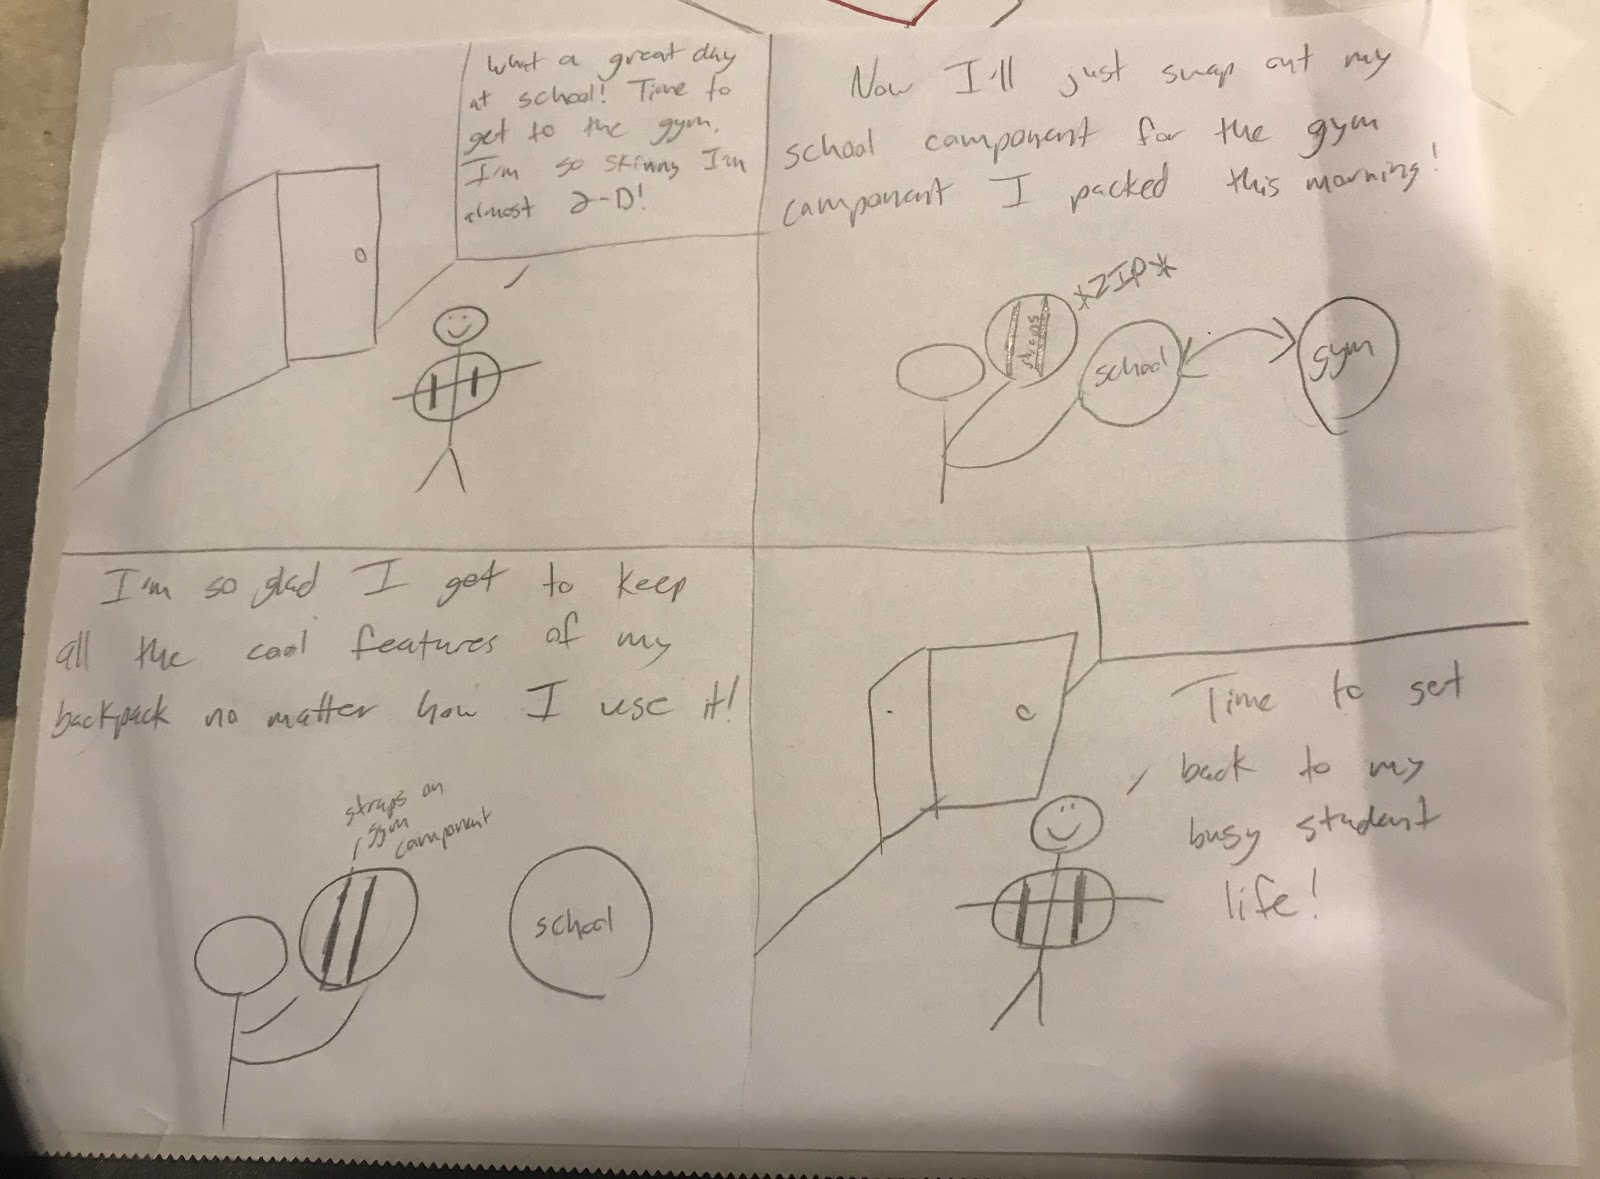 What a great day
at school! Time to
get to the gym.
I'm so skinny I'm
almost 2-D!
Now I'll just swap out my
school component for the gym
component I packed this morning!
*ZIP*
straps
school
gym
I'm so glad I get to keep
all the cool features of my
backpack no matter how I use it!
straps on
gym
component
school
Time to get
back to my
busy student
life!